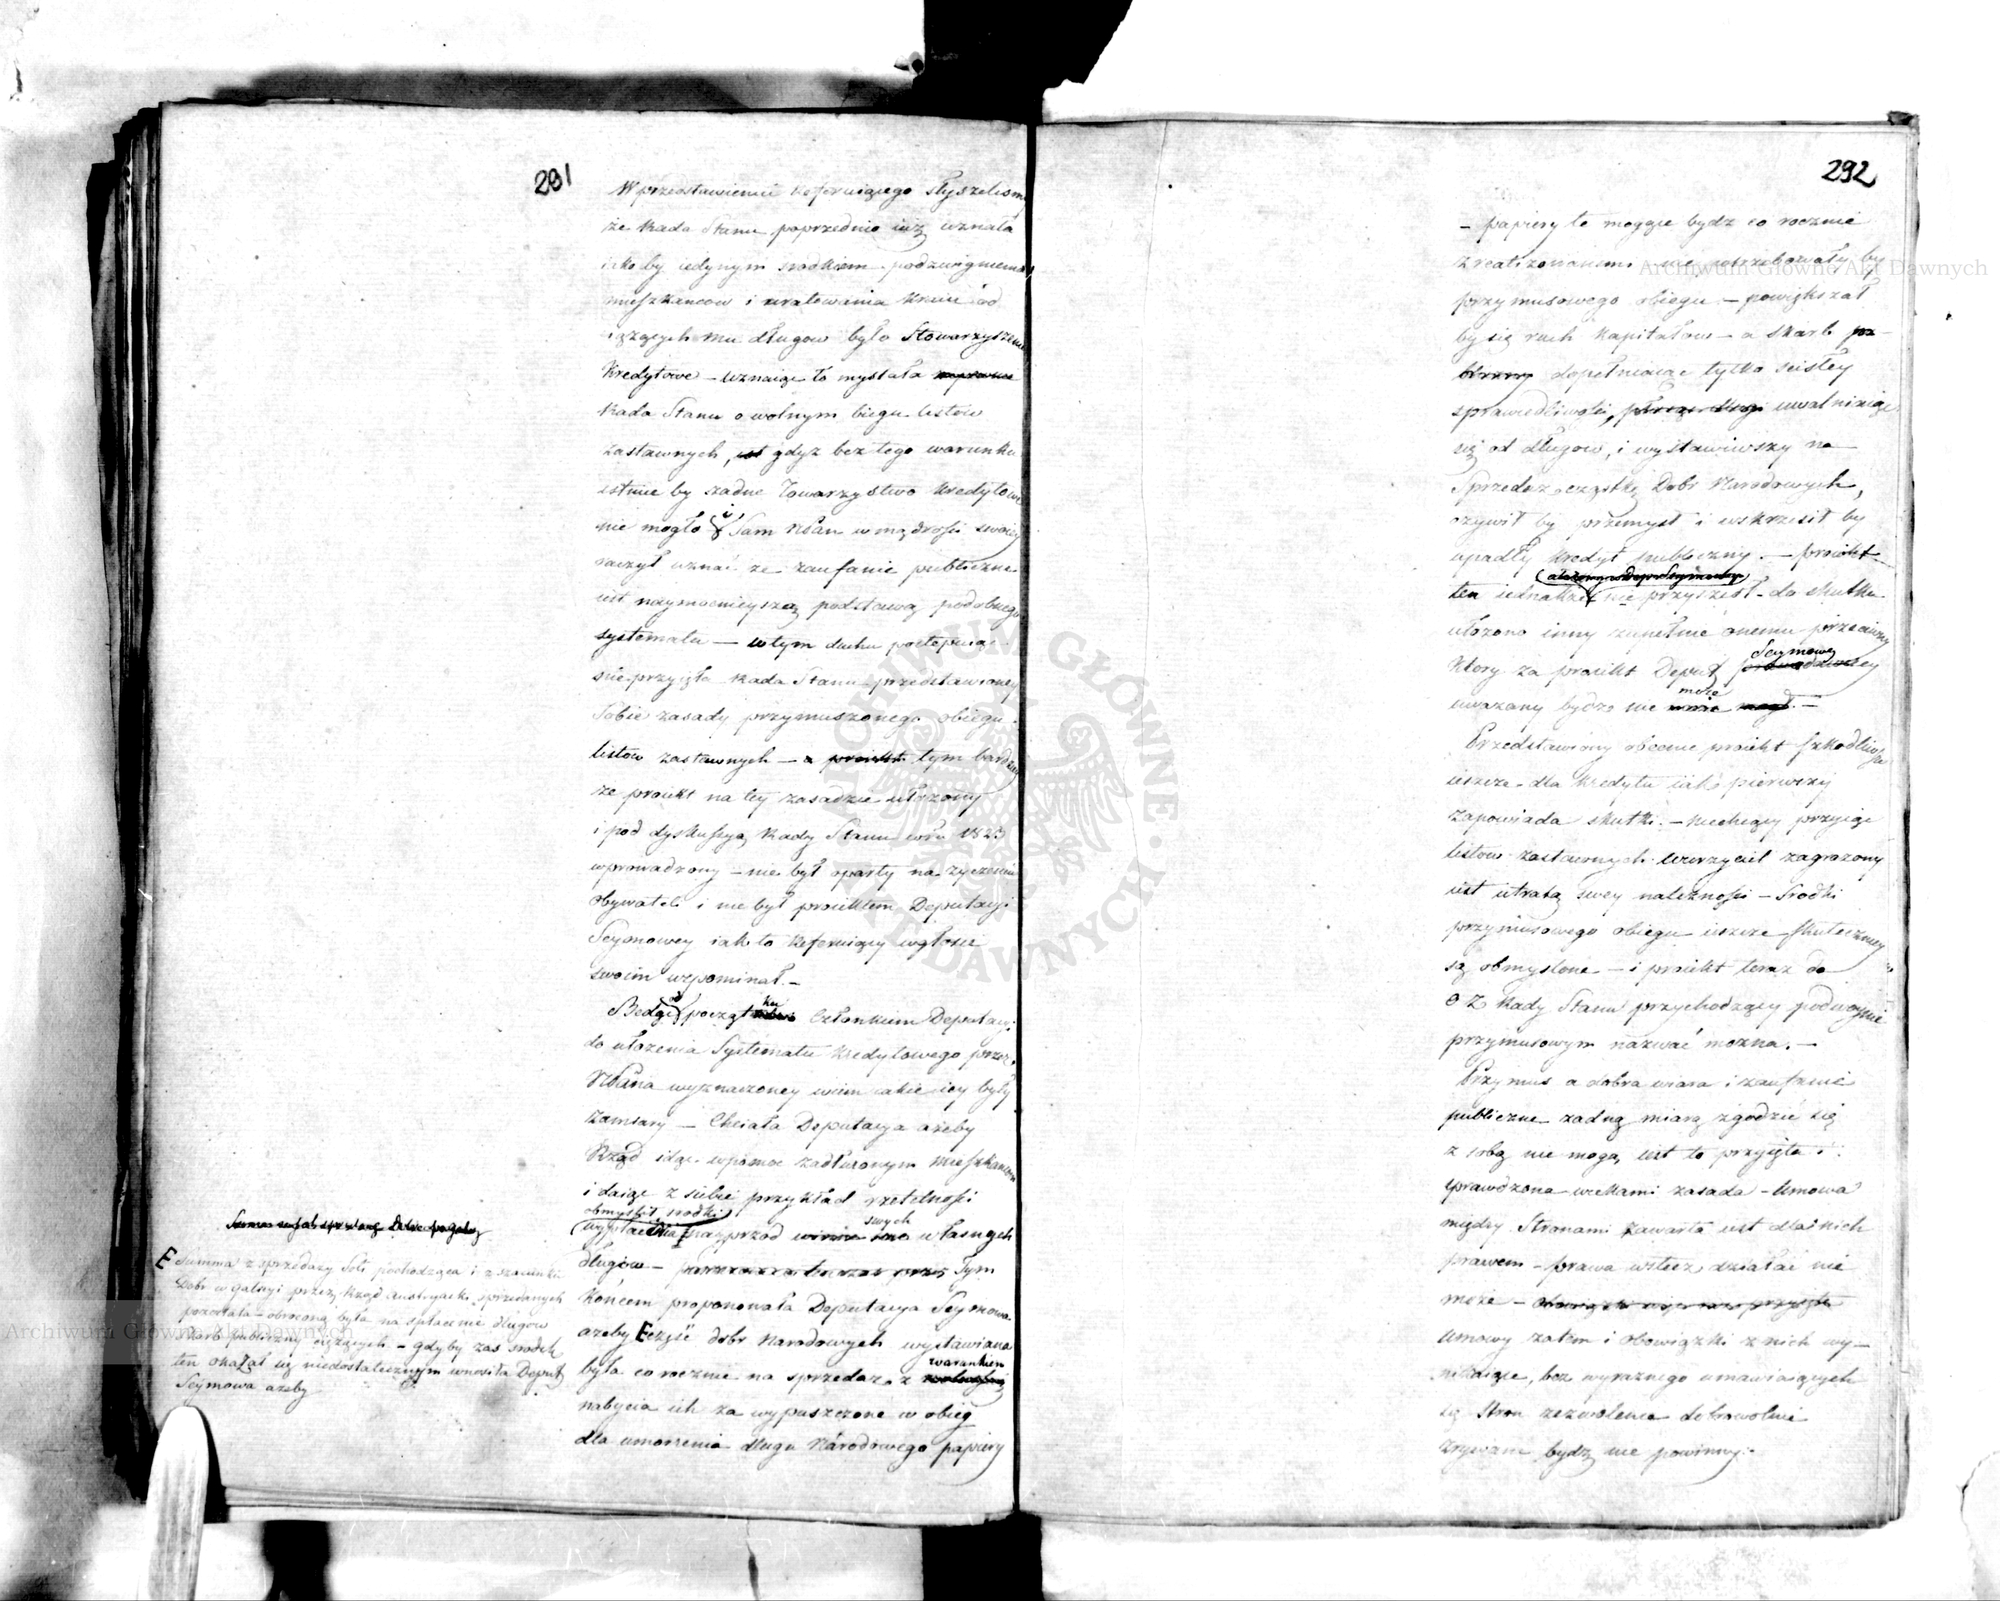 291
W przedstawieniu Referuiącego słyszeliśmy
że Rada Stanu poprzednio iuż uznała
iakoby iedynym srodkiem podzwignienia
mieszkancow i uratowania kraiu od
ciążących mu długow było Stowarzyszenie
Kredytowe – uznaiąc to myslała
Rada Stanu o wolnym biegu listow
zastawnych, gdyz bez tego warunku
istnie by żadne Towarzystwo Kredytowe
nie mogło i Sam NPan w mądrości swoiey
raczył uznać ze zaufanie publiczne
iest naymocnieyszą podstawą podobnego
systematu – w tym duchu postępuiąc
nie przyięła Rada Stanu przedstawioney
Sobie zasady przymuszonego obiegu
listow zastawnych – a proiekt tym bardziey
ze proiekt na tey zasadzie ułożony
i pod dyskussyą Rady Stanu w Ru 1823
wprowadzony – nie był oparty na życzeniu
obywateli i nie był proiektem Deputacyi
Seymowey iak to Referuiący w głosie
swoim wspominał. –
Będąc od początku Członkiem Deputacyi
do ułożenia Systematu Kredytowego przez
NPana wyznaczoney wiem iakie iey były
zamiary – Chciała Deputacya ażeby
Rząd idąc w pomoc zadłużonym Mieszkancom
i daiąc z siebie przykład rzetelności
obmyslił srodki
swych
wypłacenia nayprzod własnych
długow – Tym
Końcem proponowała Deputacya Seymowa
ażeby E część dobr Narodowych wystawiana
warunkiem
była co rocznie na sprzedaz z
nabycia ich za wypuszczone w obieg
dla umorzenia długu Narodowego papiery
E Summa z sprzedaży Soli pochodząca i z szacunku
Dobr w Galicyi przez Rząd Austryacki sprzedanych
pozostała – obrocona była na spłacenie długow
Skarb publiczny ciążących – gdyby zas srodek
ten okazał się niedostatecznym wnosiła Deput
Seymowa ażeby
292
– papiery te mogące bydz co rocznie
zrealizowanemi nie potrzebowały by
przymusowego obiegu – powiększał
by się ruch Kapitałow – a skarb
dopełniaiąc tylko scisłey
sprawiedliwości, uwalniaiąc
się od długow, i wystawiwszy na
Sprzedaz cząstkę Dobr Narodowych,
ozywił by przemysł i wskrzesił by
upadły kredyt publiczny. – proiekt
ten iednakże nie przyszedł do skutku
ułożono inny zupełnie onemu przeciwny
Seymowey
Ktory za proiekt Deput
może
uwazany bydz nie –
Przedstawiony obecnie proiekt szkodliwsze
ieszcze dla Kredytu iak pierwszy
zapowiada skutki – niechcący przyiąć
listow zastawnych wierzyciel zagrozony
iest utratą swey należności – Srodki
przymusowego obiegu ieszcze skuteczniey
są obmyslone – i proiekt teraz do
O Z Rady Stanu przychodzący podwoynie
przymusowym nazwać można. –
Przymus a dobra wiara i zaufanie
publiczne żadną miarą zgodzić się
z sobą nie mogą, iest to przyięta i
sprawdzona wiekami zasada – Umowa
między Stronami zawarta iest dla nich
prawem – prawa wstecz działać nie
może –
umowy zatem i obowiązki z nich wy-
nikaiące, bez wyraznego umawiaiących
się Stron zezwolenia dobrowolnie
zrywane bydz nie powinny. –
Archiwum Główne Akt Dawnych
Archiwum Główne Akt Dawnych
ARCHIWUM GŁÓWNE AKT DAWNYCH